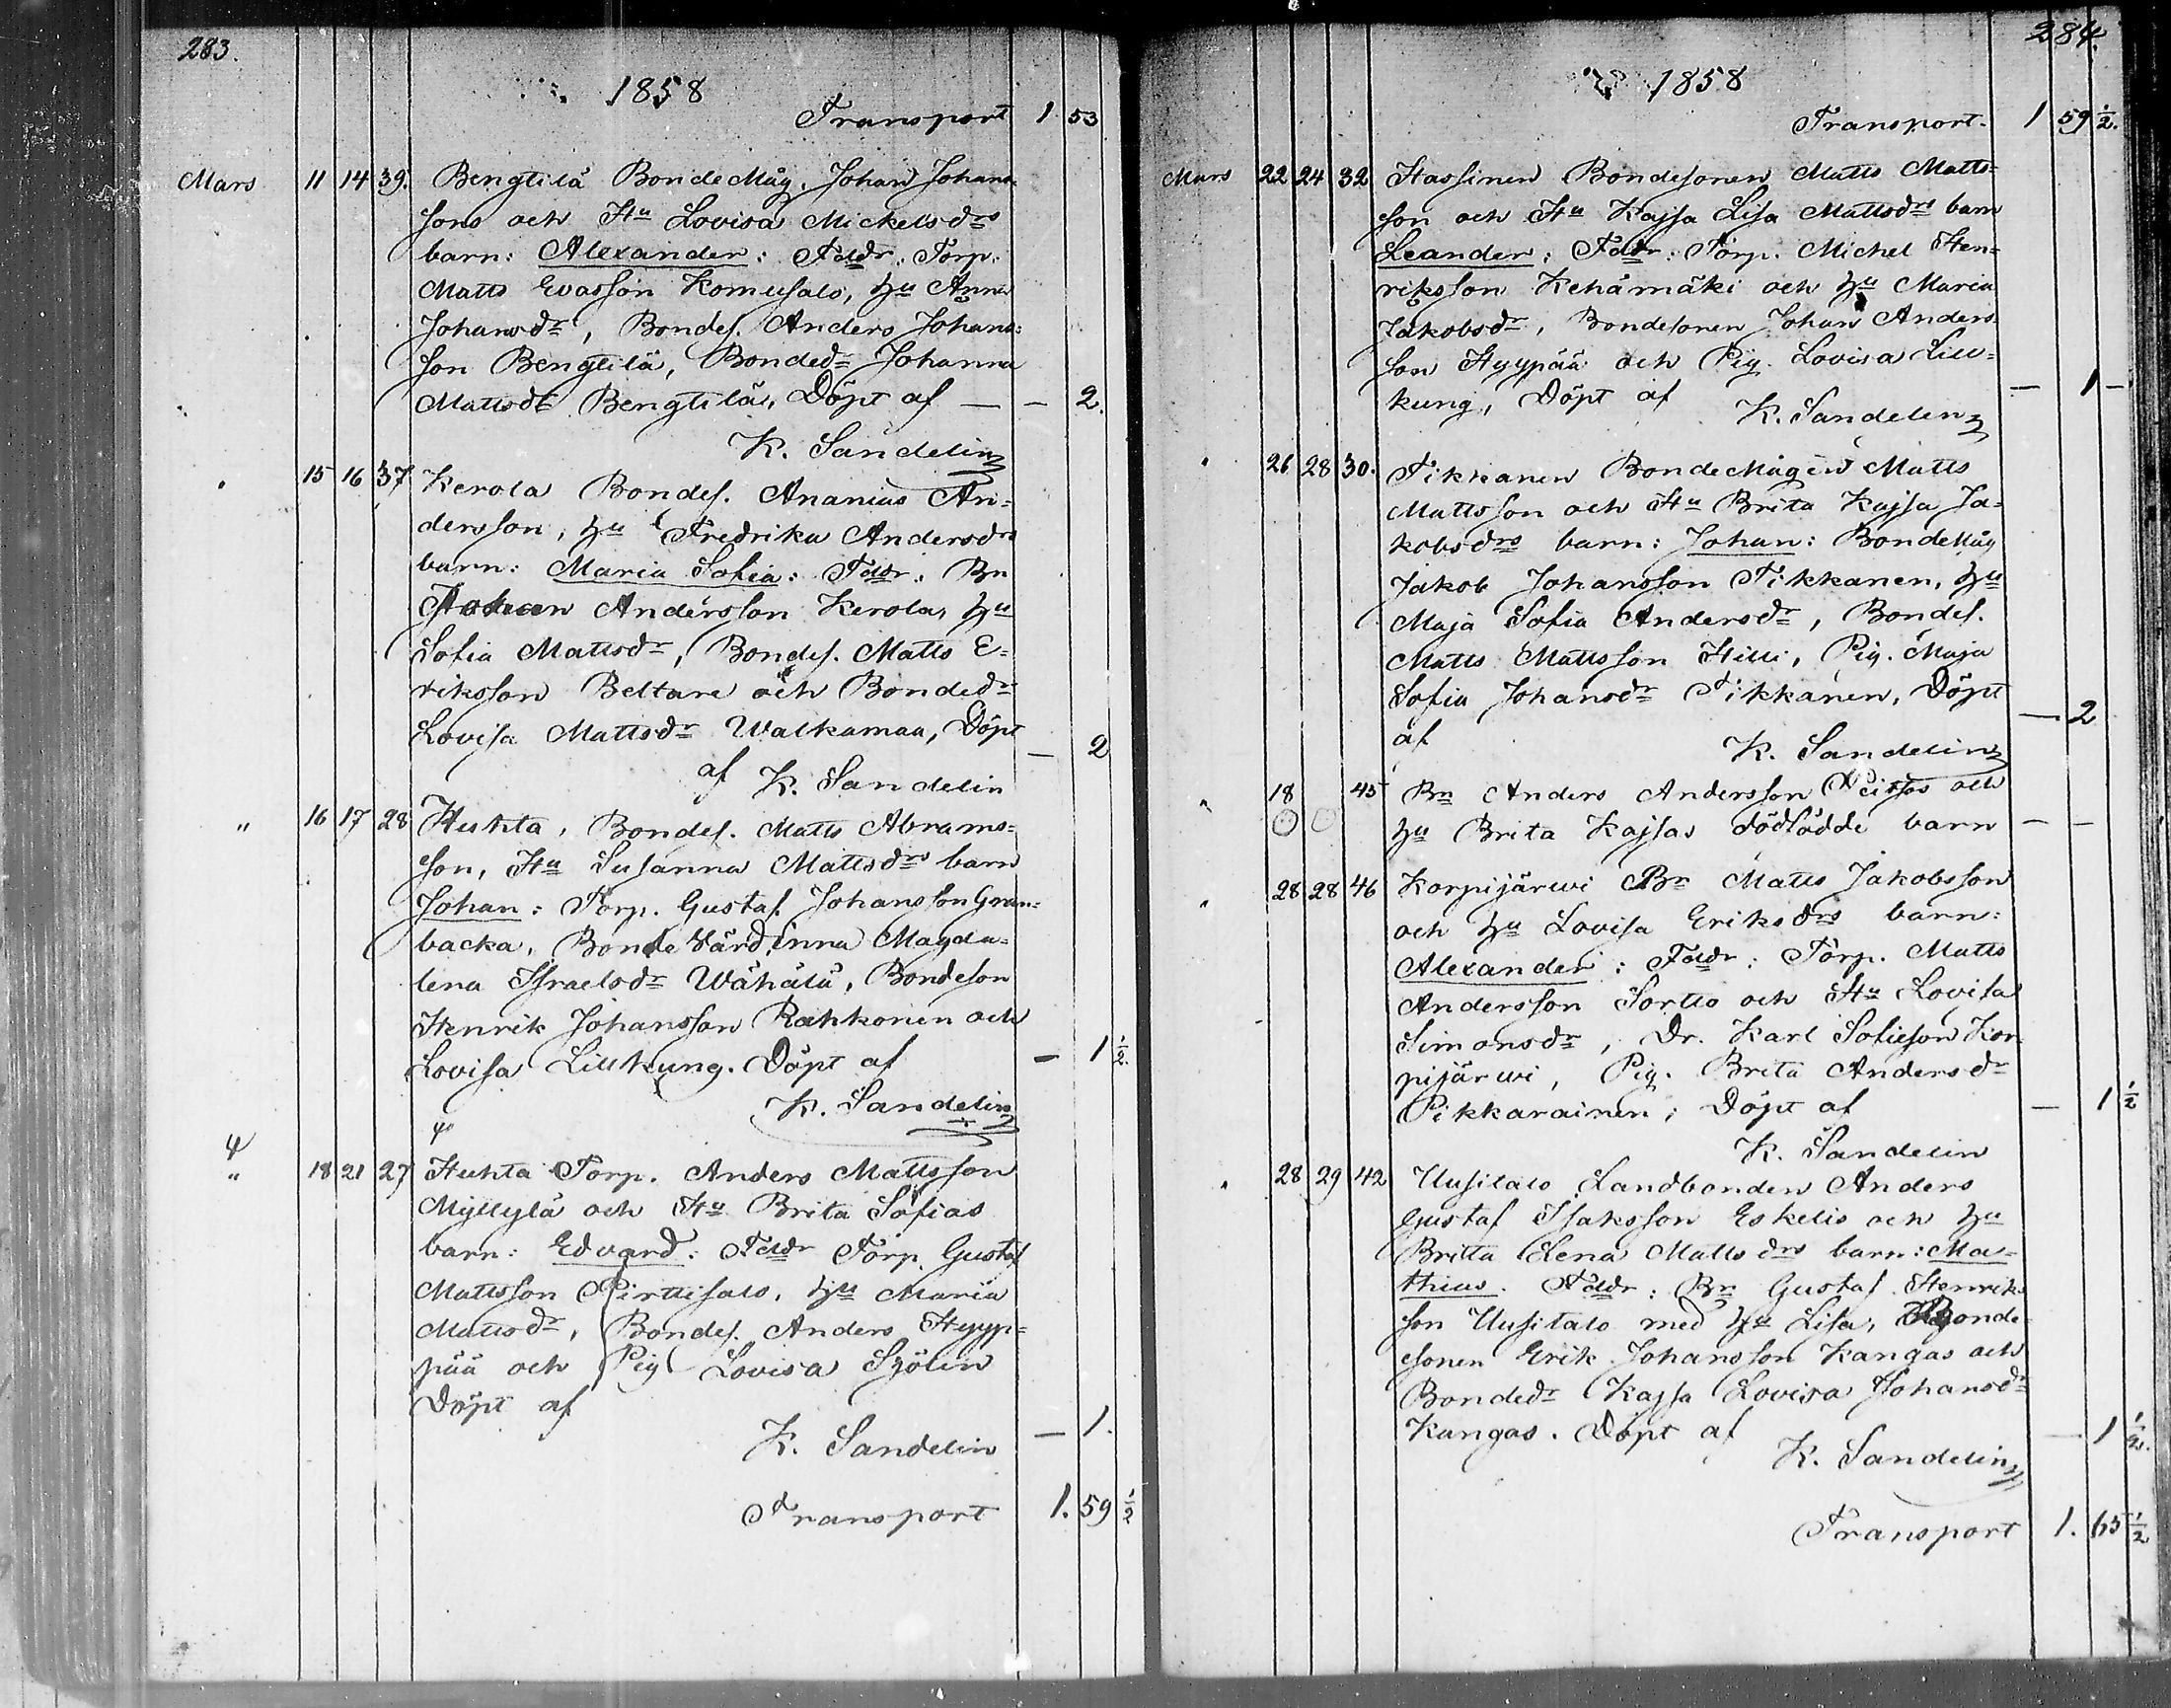 283.
1858
Transport 1 53
Mars 11 14 39. Bengtilä BondeMåg. Johan Johans-
sons och Hu Lovisa Mickelsdrs
barn: Alexander: Faddr: Torp.
Matts Evasson Komusalo, hu Anna
Johansdr, Bondes. Anders Johans-
son Bengtilä, Bondedr Johanna
Mattsdr Bengtilä, Döpt af — — 2.
K. Sandelin
" 15 16 37 Kerola Bondes. Ananias An-
dersson, hu Fredrika Andersdrs
barn: Maria Sofia: Faddr: Bn
Andersson Kerola, hu
Sofia Mattsdr, Bondes. Matts E-
riksson Beltare och Bondedr
Lovisa Mattsdr Walkamaa, Döpt — 2
af K. Sandelin
" 16 17 28 Huhta, Bondes. Matts Abrams-
son, Hu Susanna Mattsdrs barn
Johan: Torp. Gustaf Johansson Gran-
backa, BondeVärdinna Magda-
lena Israelsdr Wähälä, Bondeson
Henrik Johansson Rahkonen och
Lovisa Lillkung. Döpt af — 1 1/2.
K. Sandelin
" 18 21 27 Huhta Torp. Anders Mattsson
Myllylä och Hu Brita Sofias
barn: Edvard: Faddr Torp. Gustaf
Mattsson Pirttisalo, hu Maria
Mattsdr, Bondes. Anders Hyyp-
pää och Pig Lovisa Sjölin
Döpt af
K. Sandelin — 1.
Transport 1. 59 1/2
284.
1858
Transport. 1 59 1/2.
Mars 22 24 32 Hassinen Bondesonen Matts Matts-
son och Hu Kajsa Lisa Mattsdrs barn
Leander: Faddr: Torp. Michel Hen-
riksson Kehämäki och hu Maria
Jakobsdr, Bondesonen Johan Anders-
son Hyypää och Pig. Lovisa Lill-
kung, Döpt af — 1 —
K. Sandelin
" 26 28 30. Tikkanen BondeMågen Matts
Mattsson och Hu Brita Kajsa Ja-
kobsdrs barn: Johan: BondeMåg
Jakob Johansson Tikkanen, hu
Maja Sofia Andersdr, Bondes.
Matts Mattsson Hilli, Pig. Maja
Sofia Johansdr Tikkanen, Döpt
af — 2
K. Sandelin
" 18 45 Bn Anders Andersson och
hu Brita Kajsas dödfödde barn — —
" 28 28 46 Korpijärwi Bn Matts Jakobsson
och hu Lovisa Eriksdrs barn:
Alexander: Faddr: Torp. Matts
Andersson Sortto och Hu Lovisa
Simonsdr, Dr. Karl Sofieson Kor-
pijärwi, Pig. Brita Andersdr
Pikkarainen; Döpt af — 1 1/2
K. Sandelin
" 28 29 42 Uusitalo Landbonden Anders
Gustaf Isaksson Eskelis och hu
Britta Lena Mattsdrs barn: Ma-
thias. Faddr: Bn Gustaf Henriks-
son Uusitalo med hu Lisa, Bonde-
sonen Erik Johansson Kangas och
Bondedr Kajsa Lovisa Johansdr
Kangas. Döpt af — 1 1/2.
K. Sandelin
Transport 1. 65 1/2